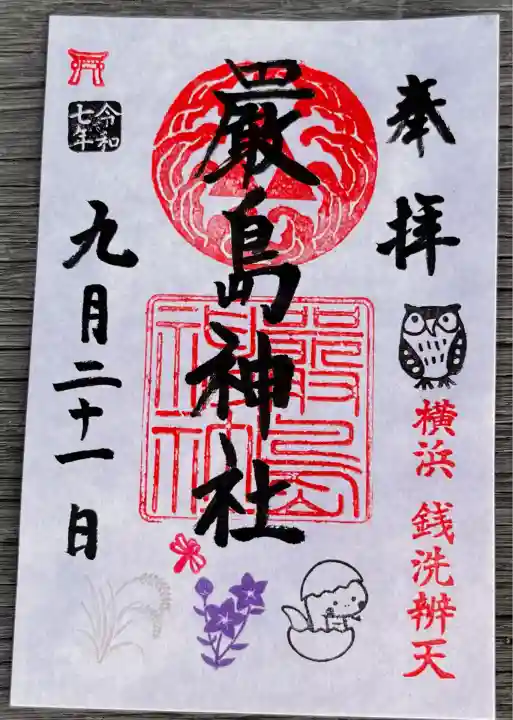 奉拝
横浜 銭洗辨天
嚴島神社
嚴島神社
令和七年
九月二十一日